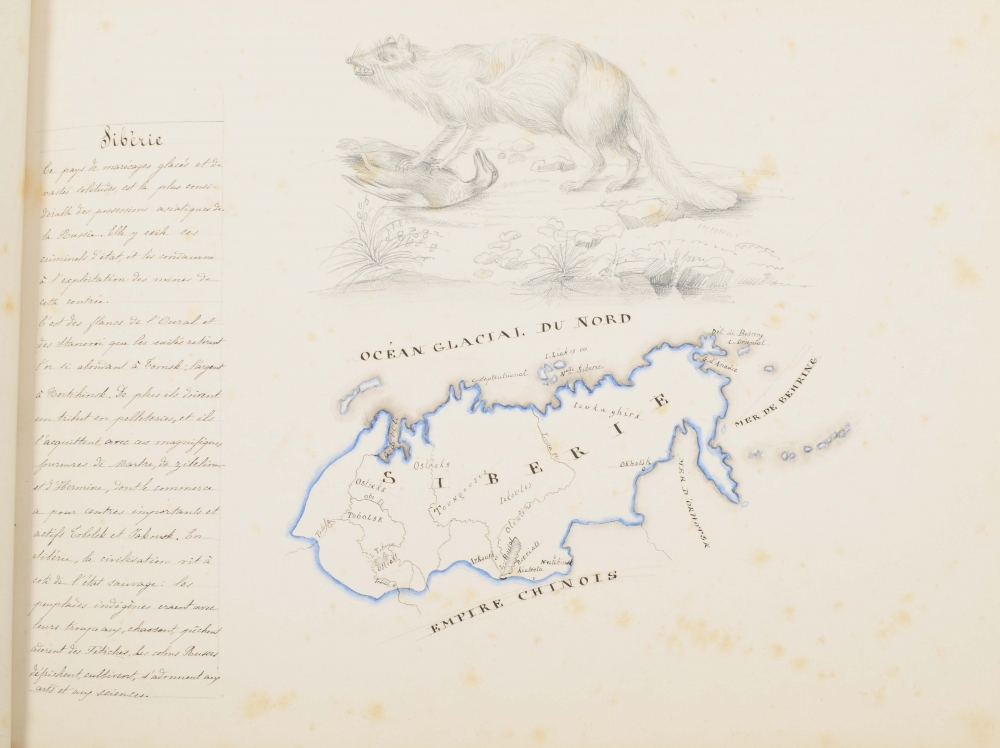 Sibérie
Ce pays de marécages glacés et de
vastes solitudes, est la plus consi-
dérable des possessions asiatiques de
la Russie. Elle y exile ses
criminels d'état, et les condamne
à l'exploitation des mines de
cette contrée.
C'est des flancs de l'Oural et
des Stanovoi que les exilés retirent
l'or si abondant à Tomsk, l'argent
à Nertchinsk. De plus ils doivent
un tribut en pelleteries, et ils
l'acquittent avec ces magnifiques
fourrures de Martre, de Zibeline
et d'Hermine, dont le commerce
a pour centres importants et
actifs Tobolsk et Irkousk. En
Sibérie, la civilisation vit à
coté de l'état sauvage: les
peuplades indigènes errent avec
leurs troupeaux, chassent, pêchent
adorent des Fétiches. Les colons Russes
défrichent, cultivent, s'adonnent aux
arts et aux sciences.
OCÉAN GLACIAL DU NORD
Septentrional
Nlle Sibérie
Dét. de Behring
C. Oriental
G. d'Anadir
MER DE BEHRING
SIBERIE
Ioukaghirs
Ostiaks
Ostiaks
Obi
Tobolsk
Tobol
Toungouses
Iakoutes
Okhotsk
MER D'OKHOTSK
EMPIRE CHINOIS